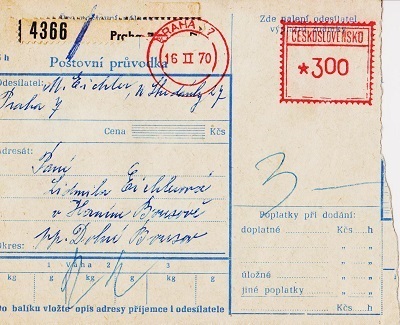 4366
Praha
PRAHA 7
16 II 70
Zde nalepí odesílatel
ČESKOSLOVENSKO
*300
Poštovní průvodka
Odesílatel: M. Eichler,
Praha 7
Cena Kčs
Adresát:
Paní
Ludmila Eichlerová
v Horním Bousově
pp. Dolní Bousov
Okres:
3 —
Doplatky při dodání:
doplatné Kčs h
úložné
jiné poplatky
Váha
kg g kg g kg g
Do balíku vložte opis adresy příjemce i odesílatele